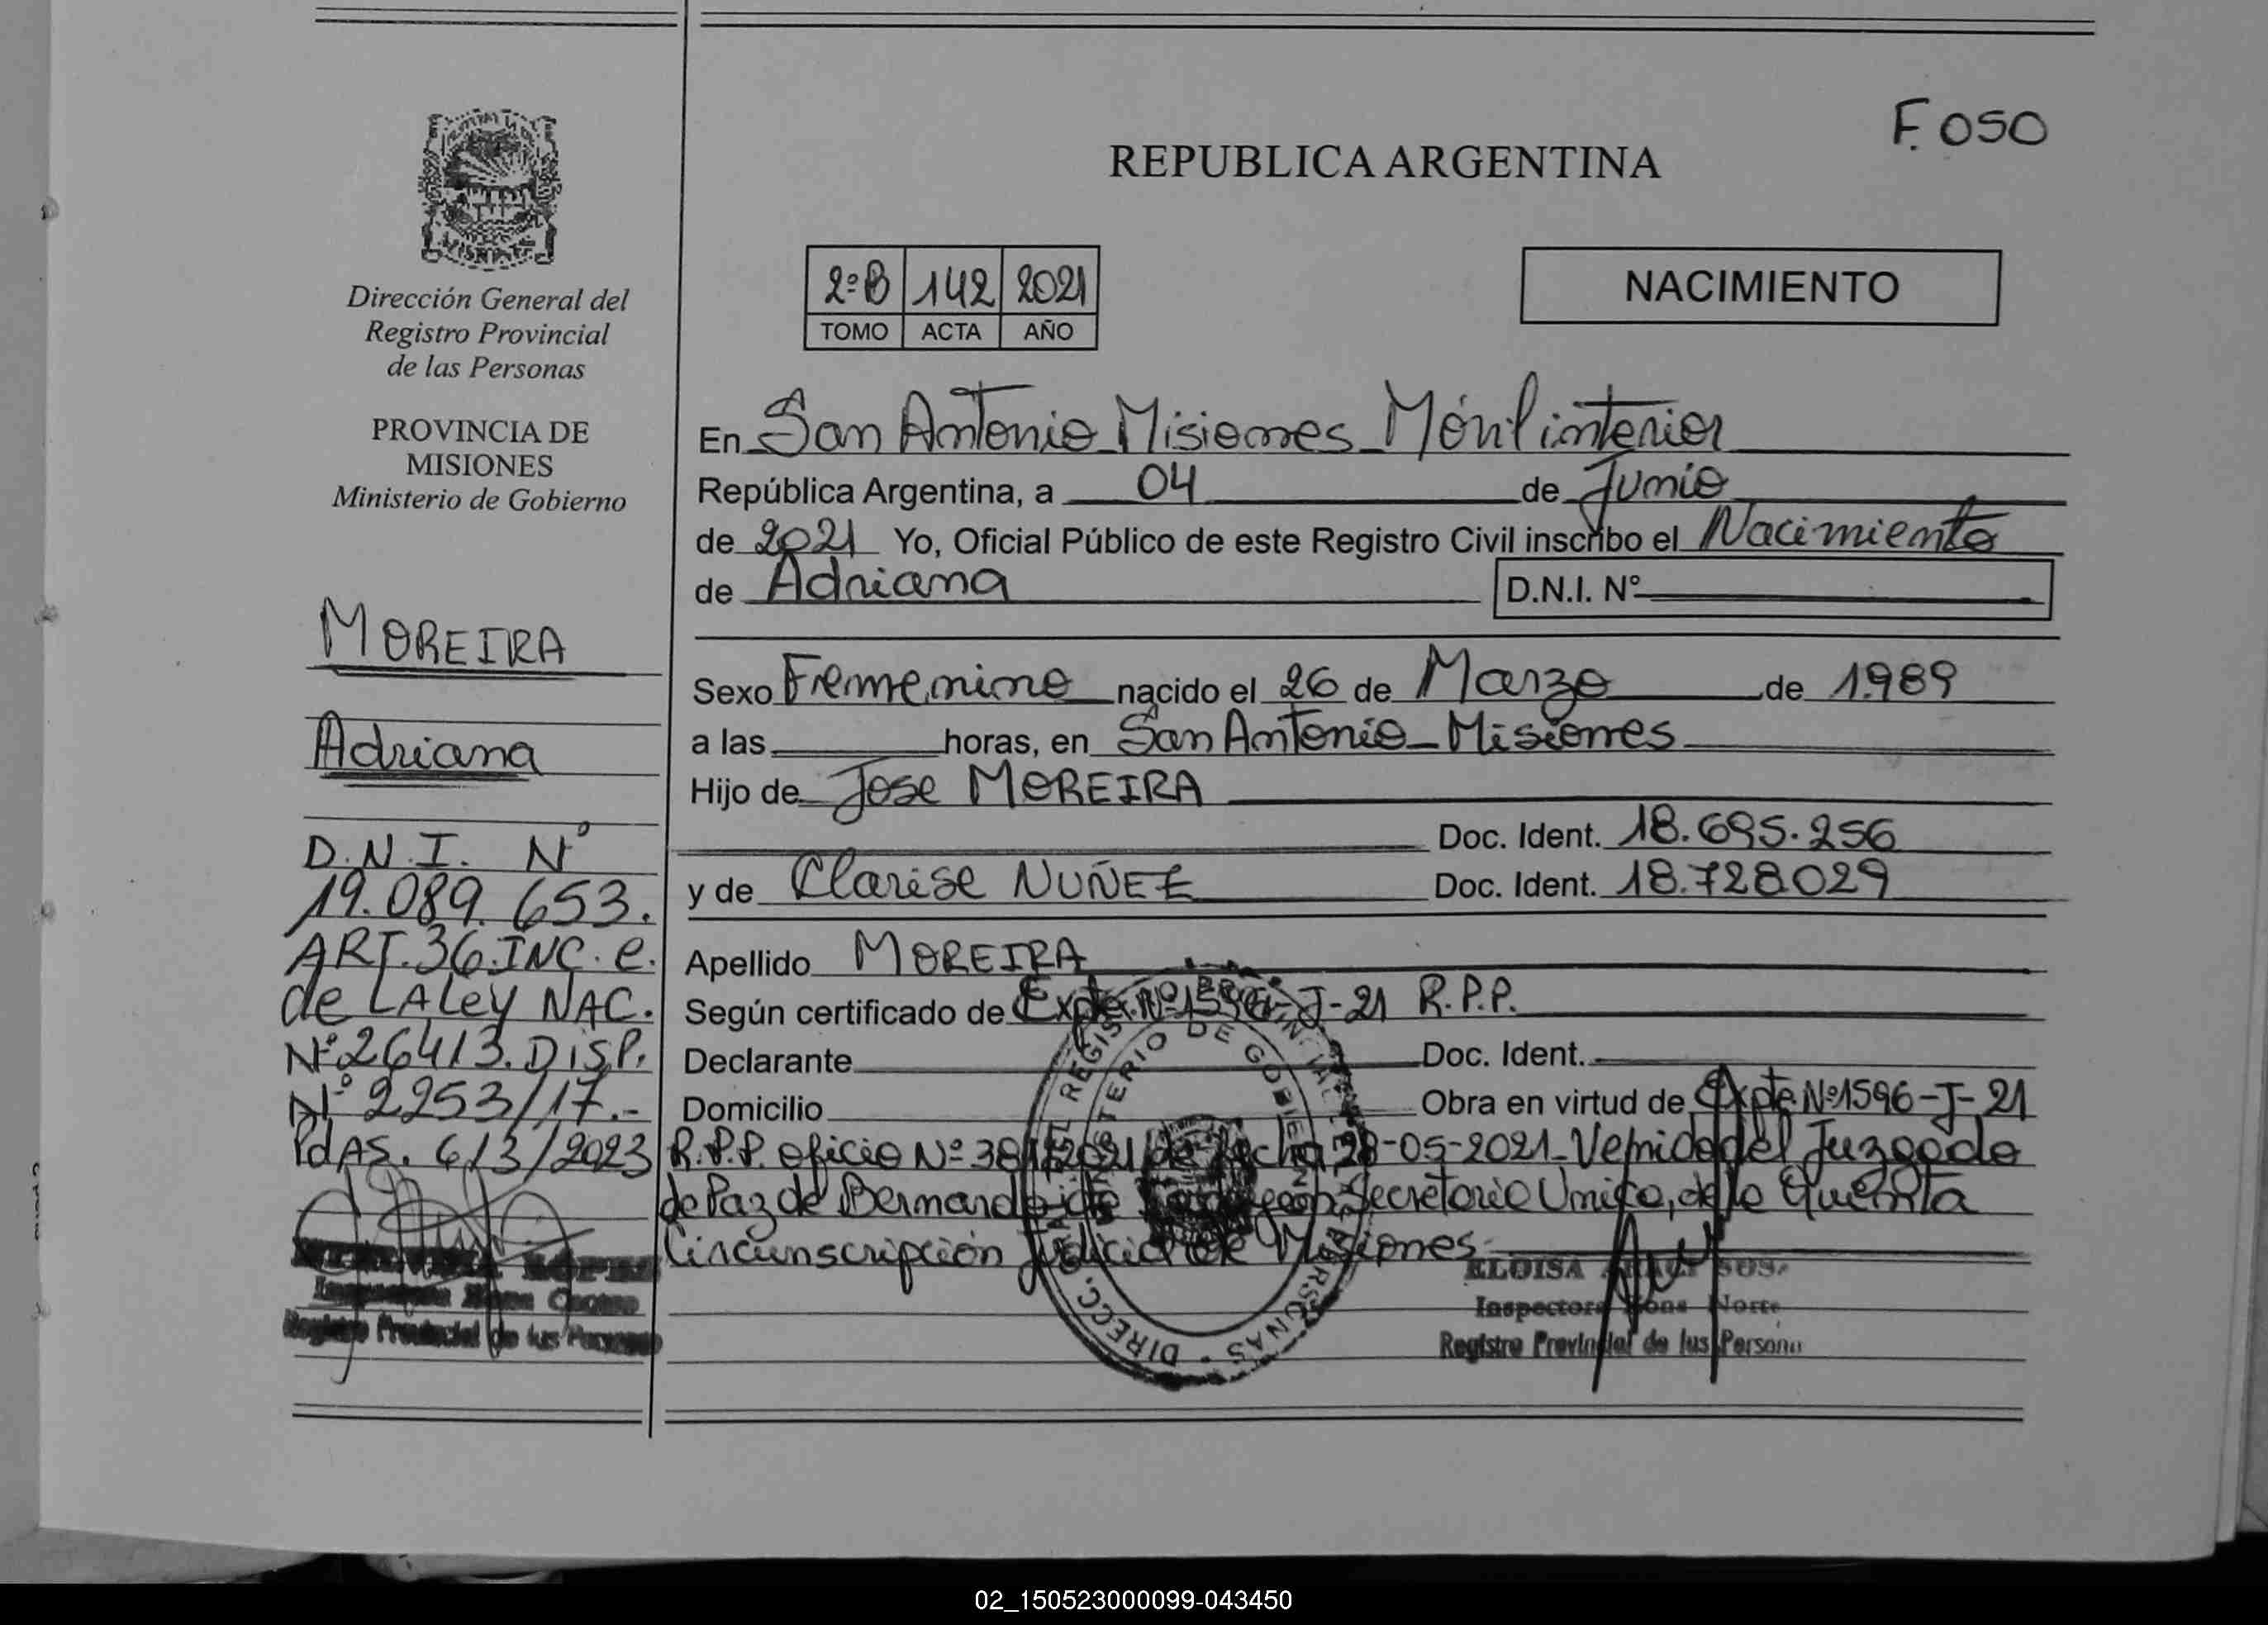 F. 050
REPUBLICA ARGENTINA
Dirección General del
Registro Provincial
de las Personas
PROVINCIA DE
MISIONES
Ministerio de Gobierno
2º B 142 2021
TOMO ACTA AÑO
NACIMIENTO
En San Antonio Misiones Móvil interior
República Argentina, a 04 de Junio
de 2021 Yo, Oficial Público de este Registro Civil inscribo el Nacimiento
de Adriana D.N.I. Nº
MOREIRA
Adriana
Sexo Femenino nacido el 26 de Marzo de 1.989
a las horas, en San Antonio - Misiones
Hijo de Jose MOREIRA
Doc. Ident. 18.695.256
y de Clarise NUÑEZ Doc. Ident. 18.728029
Apellido MOREIRA
Según certificado de Expte. Nº 1596-J-21 R.P.P.
Declarante Doc. Ident.
Domicilio Obra en virtud de Expte Nº1596-J-21
R.P.P. oficio Nº de fecha 28-05-2021 - Venido del Juzgado
de Paz de Bernardo de Secretaria Unica, de la Quinta
Circunscripción Judicial de Misiones
D.N.I. Nº
19.089.653.
ART.36.INC. e.
de LA Ley NAC.
Nº 26413. DISP.
Nº 2253/17.-
PdAS. 6/3/2023
LOPEZ
Registro Provincial de las Personas
ELOISA
Inspectora Zona Norte
Registro Provincial de las Persona
DIRECC. REGIST
MINISTERIO DE GOBIERNO
02_150523000099-043450